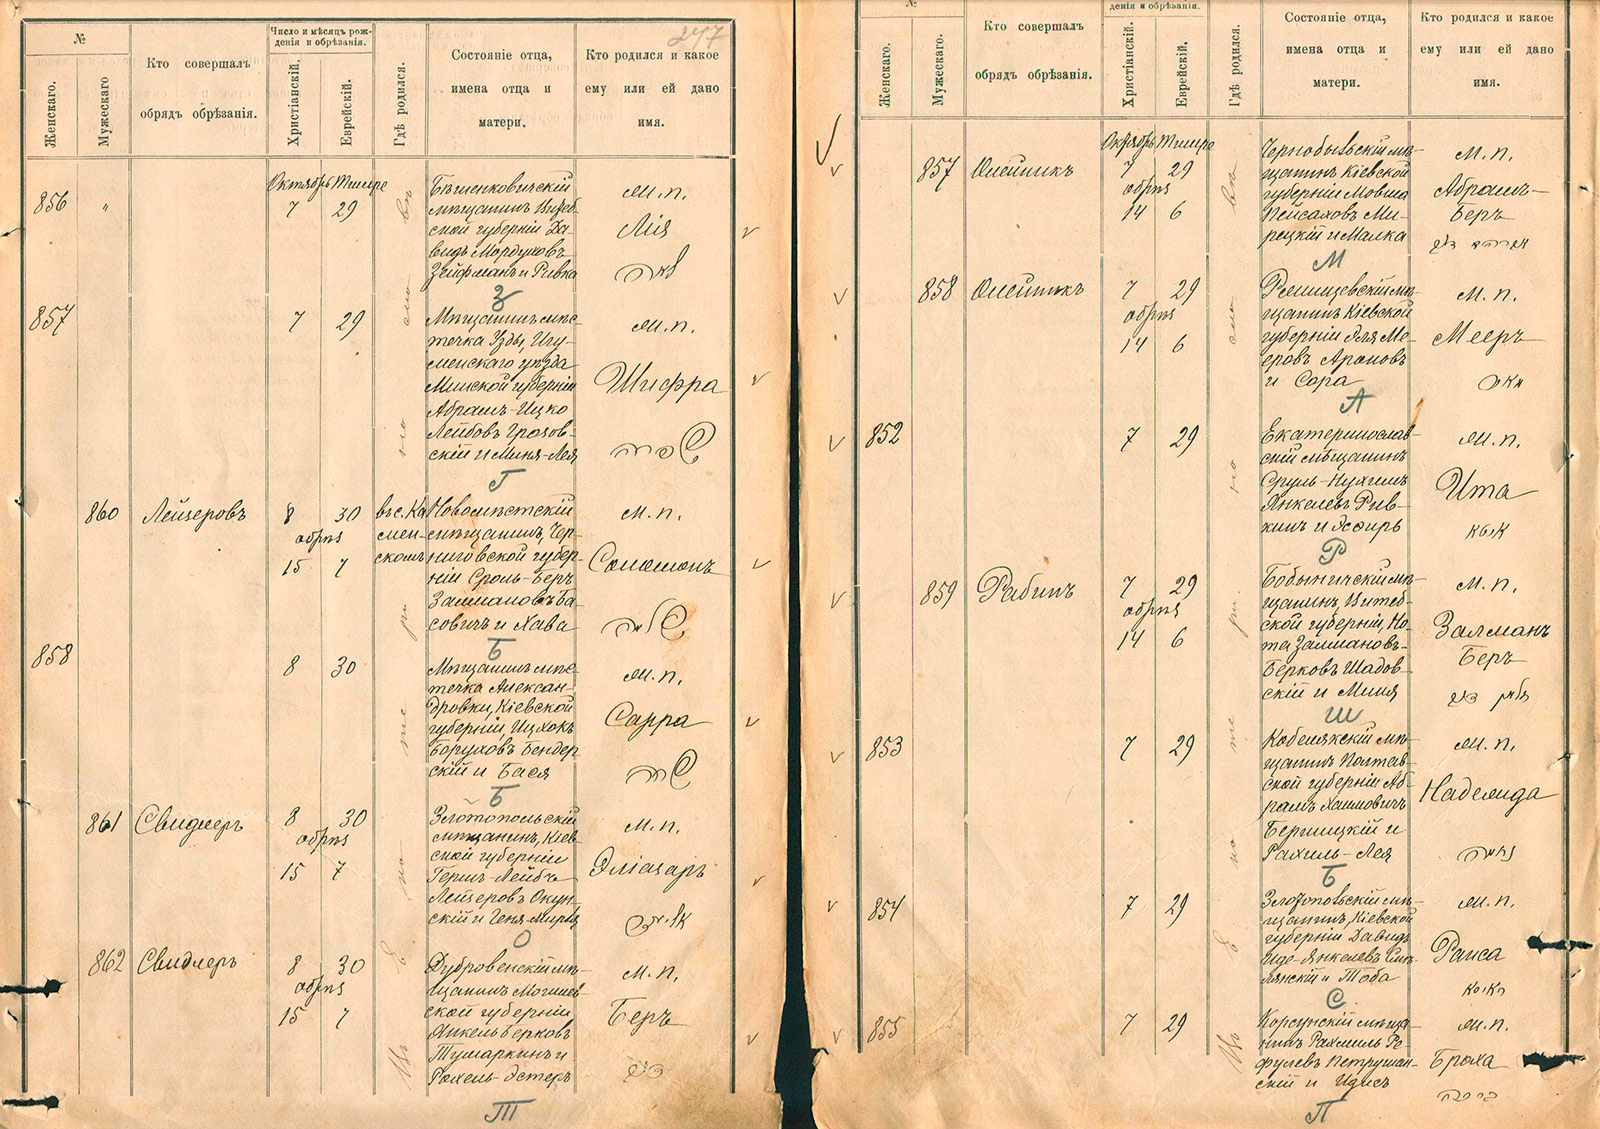 247
№
Число и мѣсяцъ рож-
денія и обрѣзанія.
Женскаго.
Мужескаго
Кто совершалъ
обрядъ обрѣзанія.
Христіанскій.
Еврейскій.
Гдѣ родился.
Состояніе отца,
имена отца и
матери.
Кто родился и какое
ему или ей дано
имя.
856
"
Октябрь Тишре
7 29
Бѣшенковичскій
мѣщанинъ Витеб-
ской губерніи Да-
видъ Мордуховъ
Зейфманъ и Ривка
м.п.
Лія
З
857
7 29
Мѣщанинъ мѣс-
течка Узды, Игу-
менскаго уѣзда
Минской губерніи
Абрамъ-Ицко
Лейбовъ Грозов-
скій и Миня-Лея
м.п.
Шифра
Г
860
Лейзеровъ
8 30
обрѣз
15 7
въ с. Ка
мен-
скомъ
Новомѣстскій
мѣщанинъ, Чер-
ниговской губер-
ніи Сроль-Беръ
Залмановъ Ба-
совичъ и Хава
м.п.
Соломонъ
Б
858
8 30
Мѣщанинъ мѣс-
течка Алексан-
дровки, Кіевской
губерніи, Ицхокъ
Боруховъ Бендер-
скій и Бася
м.п.
Сарра
Б
861
Свидлеръ
8 30
обрѣз
15 7
Златопольскій
мѣщанинъ, Кіев-
ской губерніи
Гершъ-Лейбъ
Лейзеровъ Окун-
скій и Геня-Мирья
м.п.
Эліазаръ
О
862
Свидлеръ
8 30
обрѣз
15 7
Дубровенскій мѣ-
щанинъ Могилев-
ской губерніи
Янкель Берковъ
Тумаркинъ и
Рохель-Эстеръ
м.п.
Беръ
Т
№
денія и обрѣзанія.
Женскаго.
Мужескаго.
Кто совершалъ
обрядъ обрѣзанія.
Христіанскій.
Еврейскій.
Гдѣ родился.
Состояніе отца,
имена отца и
матери.
Кто родился и какое
ему или ей дано
имя.
857
Олейникъ
Октябрь Тишре
7 29
обрѣз
14 6
Чернобыльскій мѣ-
щанинъ Кіевской
губерніи Мовша
Пейсаховъ Ми-
рецкій и Малка
м.п.
Абрамъ-
Беръ
М
858
Олейникъ
7 29
обрѣз
14 6
щанинъ Кіевской
губерніи Эля Ме-
еровъ Ароновъ
и Сора
м.п.
Мееръ
А
852
7 29
Екатеринослав-
скій мѣщанинъ
Сруль-Нухимъ
Янкелевъ Рив-
кинъ и Эсфирь
м.п.
Ита
Р
859
Рабинъ
7 29
обрѣз
14 6
Бобыничскій мѣ-
щанинъ, Витеб-
ской губерніи, Но-
та Залмановъ-
Берковъ Шадов-
скій и Миня
м.п.
Залманъ
Беръ
Ш
853
7 29
Кобелякскій мѣ-
щанинъ Полтав-
ской губерніи Аб-
рамъ Хаимовичъ
Бершицкій и
Рахиль-Лея
м.п.
Надежда
Б
854
7 29
Златопольскій мѣ-
щанинъ, Кіевской
губерніи Давидъ
м.п.
Раиса
С
855
7 29
Корсунскій мѣща-
нинъ Рахмиль Ро-
м.п.
Броха
П